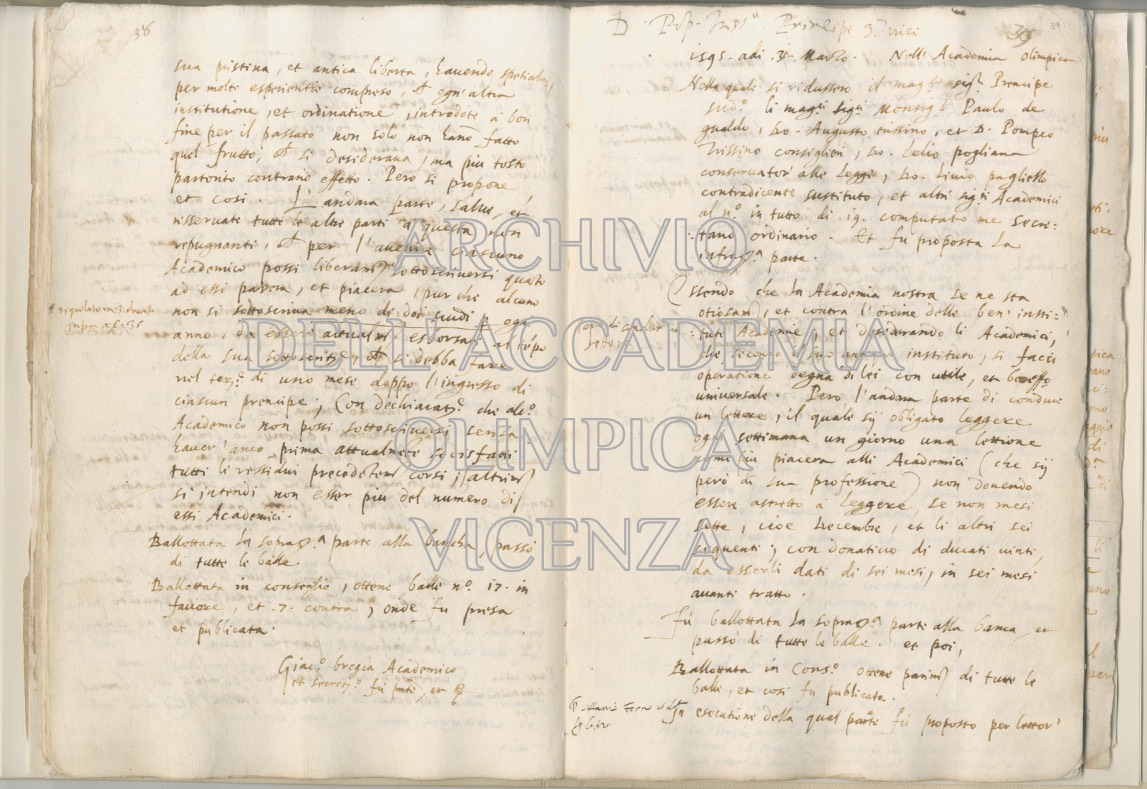 38
sua pristina, et antica liberta, havendo
per molte esperientie compreso, ch' ogn' altra
institutione, et ordinatione, introdote à bon
fine per il passato non solo non hano fatto
quel frutto, ch si desiderava, ma più tosto
partorito contrario effetto. Però si propone
et cosi L' andara parte, salve, et
riservate tutte le altre parti a questa non
repugnanti, ch per l'avenire ciascuno
Academico possi liberam sottoscriversi quanto
ad essi parera, et piacera, pur che alcuno
non si sottoscriva meno di doi scudi ogn
anno, da essere actualm esborsati al tepo
della sua sottoscritt, ch si debba fare
nel ter. di uno mese doppo l'ingresso di
ciascun prencipe; Con dechiarat. che alc.
Academico non possi sottoscriversi senza
haver' anco prima attualmente sodisfatti
tutti li ressidui precedeti corsi, altrim
si intendi non esser più del numero di
essi Academici.
Ballottata la sopra parte alla bancha, passò
di tutte le balle
Ballottata in conseglio, ottene balle n.º 17. in
favore, et .7. contra, onde fu presa
et publicata.
Giac.º bregia Academico
et Secret.
39
D. Prencipe 3.
1595. adi Marzo. Nell Academia olimpica
Nella quale si ridussero il mag sig. Prencipe
li mag sig Monsig Paulo de
gualdo, Augusto tussino, et D. Pompeo
Trissino consiglieri, Lelio pogliana
conservator' alle Leggi, Livio pagliello
contradicente sustituto, et altri sig Academici
al n.º in tutto di .19. computato me Secre:
:tario ordinario. Et fu proposta la
parte.
Essendo che la Academia nostra se ne sta
otiosam, et contra l'ordine delle ben' insti:
:tuti Academie, et desiderando li Academici,
che secondo il suo antico instituto, si facia
operatione degna di lei con utile, et
universale. Però l'andara parte di condure
un lettore, il quale sij obligato leggere
ogni settimana un giorno una lettione
piacera alli Academici (che sij
però di sua professione) non dovendo
esser astretto a leggere, se non mesi
sette, cioè Decembre, et li altri sei
sequenti; con donativo di ducati vinti,
da esserli dati di sei mesi, in sei mesi
avanti tratto.
Fù ballottata la sopra parte alla banca, et
passò di tutte le balle. et poi,
Ballottata in Cons.º ottene parim di tutte le
balle, et cosi fu publicata.
In esecutione della qual parte fù proposto per lettor'
ARCHIVIO
DELL'ACCADEMIA
OLIMPICA
VICENZA